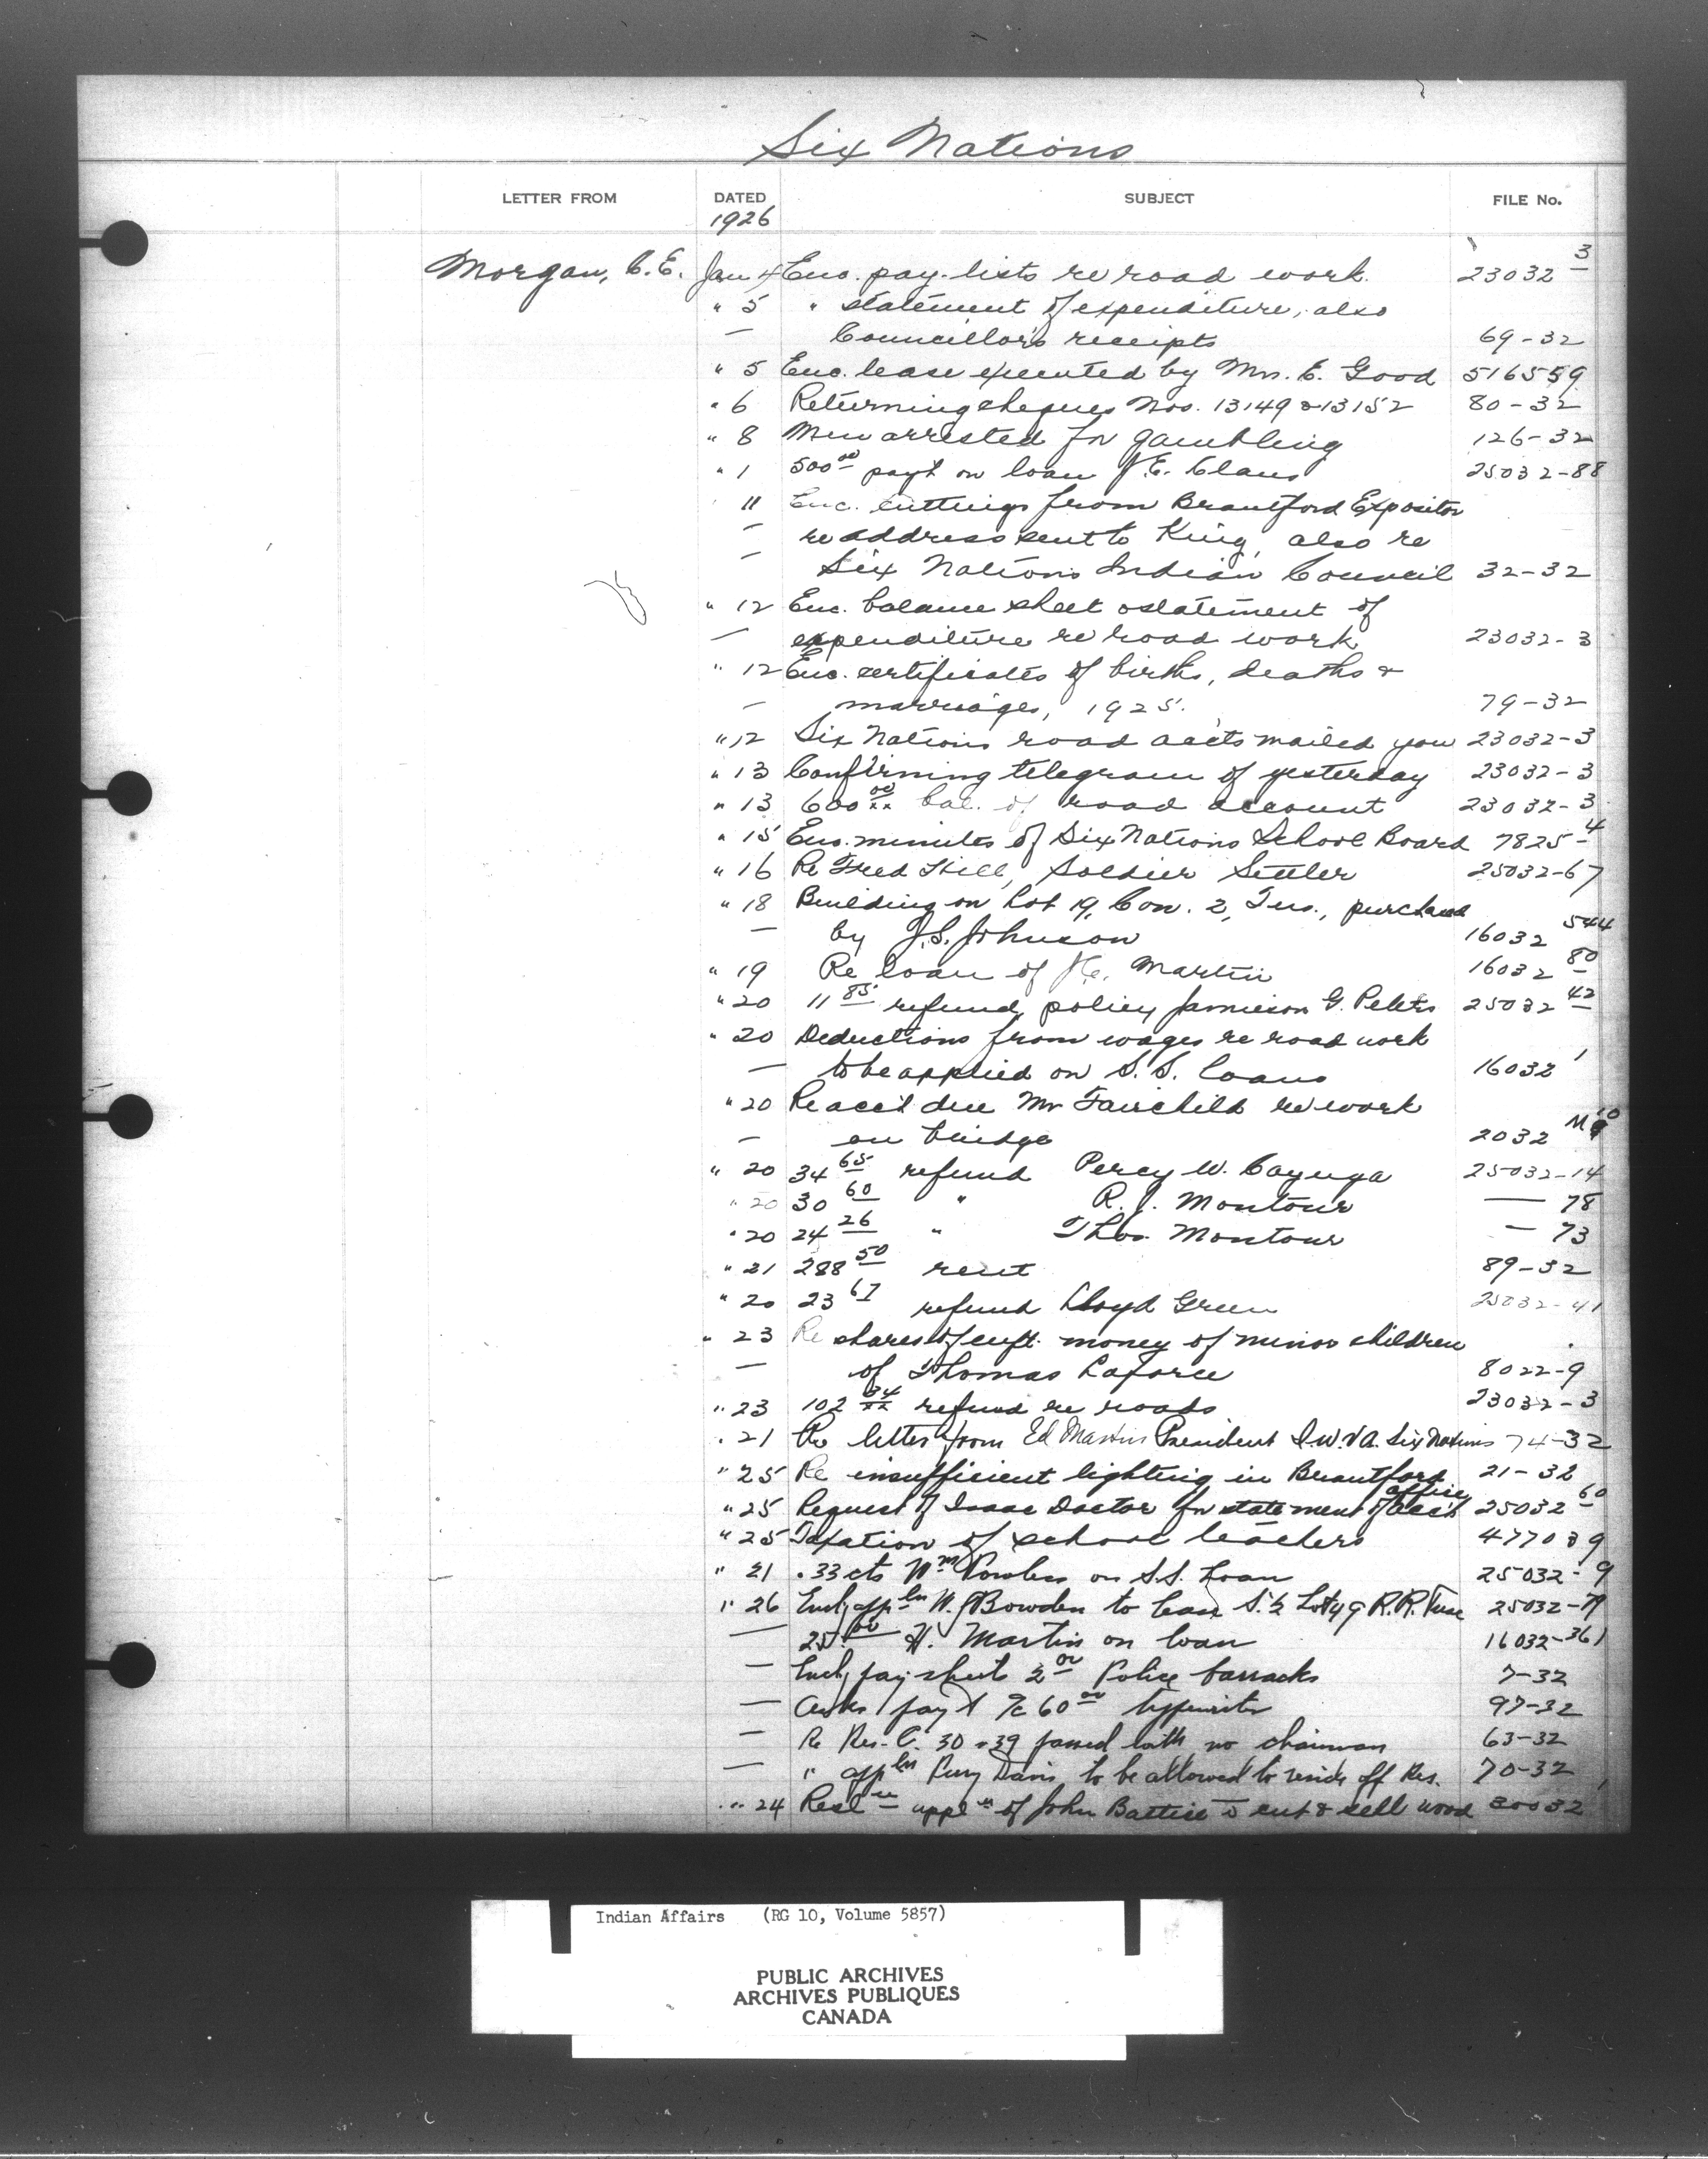 Six Nations
LETTER FROM DATED SUBJECT FILE No.
1926
Morgan, C.E. Jan 4 Enc. pay-lists re road work. 23032 3
" 5 " statement of expenditure, also
— Councillors receipts 69-32
" 5 Enc. lease executed by Mrs. E. Good 516559
" 6 Returning cheques Nos. 13149 & 13152 80-32
" 8 Men arrested for gambling 126-32
" 1 500 00 pay't on loan Claus 25032-88
11 Enc. cuttings from Brantford Expositor
— re address sent to King, also re
— Six Nations Indian Council 32-32
" 12 Enc. balance sheet & statement of
— expenditure re road work 23032-3
" 12 Enc. certificates of births, deaths &
— marriages, 1925. 79-32
" 12 Six Nations road accts mailed you 23032-3
" 13 Confirming telegram of yesterday 23032-3
" 13 600 00/xx bal. of road account 23032-3
" 15 Enc. minutes of Six Nations School Board 7825-4
" 16 Re Fred Hill, Soldier Settler 25032-67
" 18 Building on Lot 19, Con. 2, Tus., purchased
— by J.S. Johnson 16032 544
" 19 Re loan of Martin 16032 80
" 20 11 85 refund, policy Jamieson G. Peters 25032 42
" 20 Deductions from wages re road work
— to be applied on S.S. loans 16032 1
" 20 Re acc't due Mr Fairchild re work
— on bridge 2032
" 20 34 65 refund Percy W. Cayuga 25032-14
" 20 30 60 " R. J. Montour — 78
" 20 24 26 " Thos. Montour — 73
" 21 288 50 rent 89-32
" 20 23 67 refund Lloyd Green 25032-41
" 23 Re shares of cap't. money of minor children
— of Thomas Laforce 8022-9
" 23 102 34/xx refund re roads 23032-3
" 21 Re letter from Ed Martin President G.W.V.A. Six Nations 74-32
" 25 Re insufficient lighting in Brantford office 21-32
" 25 Request of Isaac Doctor for statement of acc't 25032 60
" 25 Taxation of school teachers 477039
" 21 .33 cts Wm Powless on S.S. Loan 25032-9
" 26 Encl'g app'ln W. J. Bowden to lease S. ½ Lot 49 R.R. Tusc 25032-79
— 25 00 H. Martin on loan 16032-361
— Encl'g pay sheets 2 00 Police barracks 7-32
— Asks pay't a/c 60 00 typewriter 97-32
— Re Res. C. 30 & 39 passed with no chairman 63-32
— " app'ln Percy Davis to be allowed to reside off Res. 70-32
" 24 app'l'n of John Battice to cut & sell wood 30032
Indian Affairs (RG 10, Volume 5857)
PUBLIC ARCHIVES
ARCHIVES PUBLIQUES
CANADA